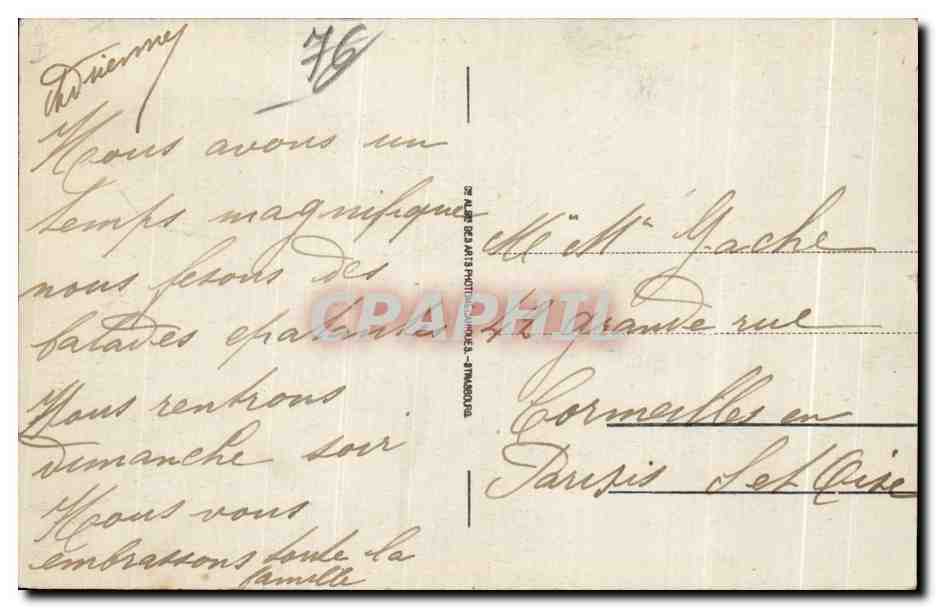 Adrienne
76
Nous avons un
temps magnifique
nous fesons des
balades epatantes
Nous rentrons
dimanche soir
Nous vous
embrassons toute la
famille
DES ARTS PHOTOMECANIQUES. - STRASBOURG.
CPARHIL
Gache
42 grande rue
Cormeilles en
Parisis S et Oise